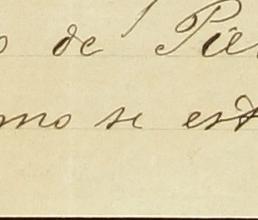 o de Pie
mo se est